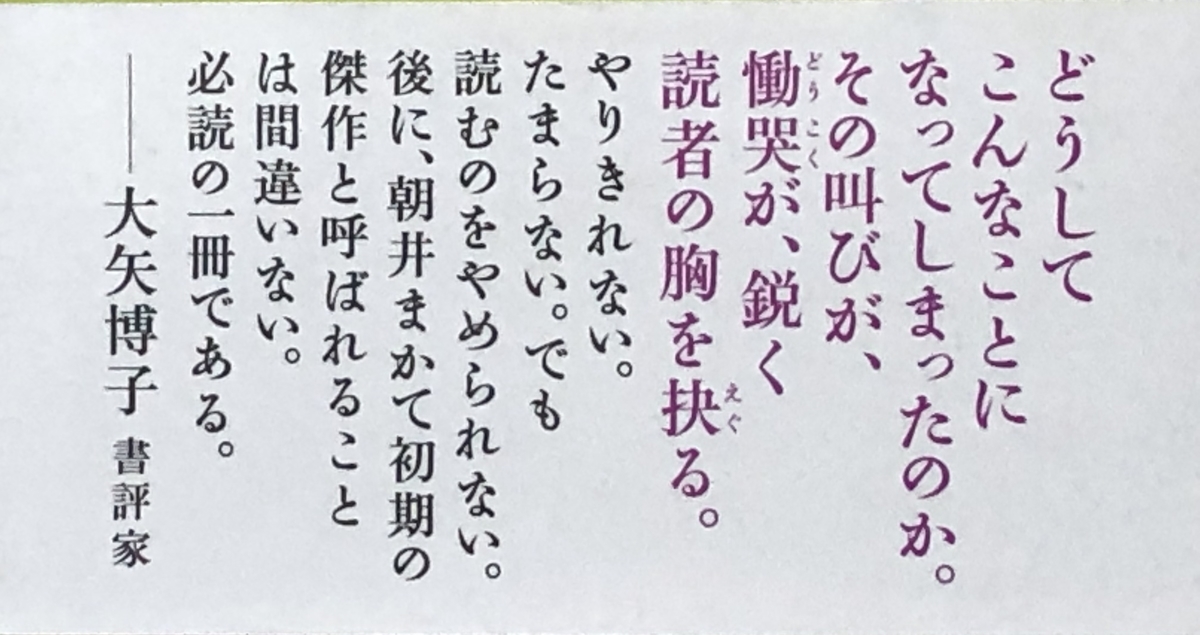 どうして
こんなことに
なってしまったのか。
その叫びが、
慟哭が、鋭く
どうこく
読者の胸を抉る。
えぐ
やりきれない。
たまらない。でも
読むのをやめられない。
後に、朝井まかて初期の
傑作と呼ばれること
は間違いない。
必読の一冊である。
――大矢博子 書評家